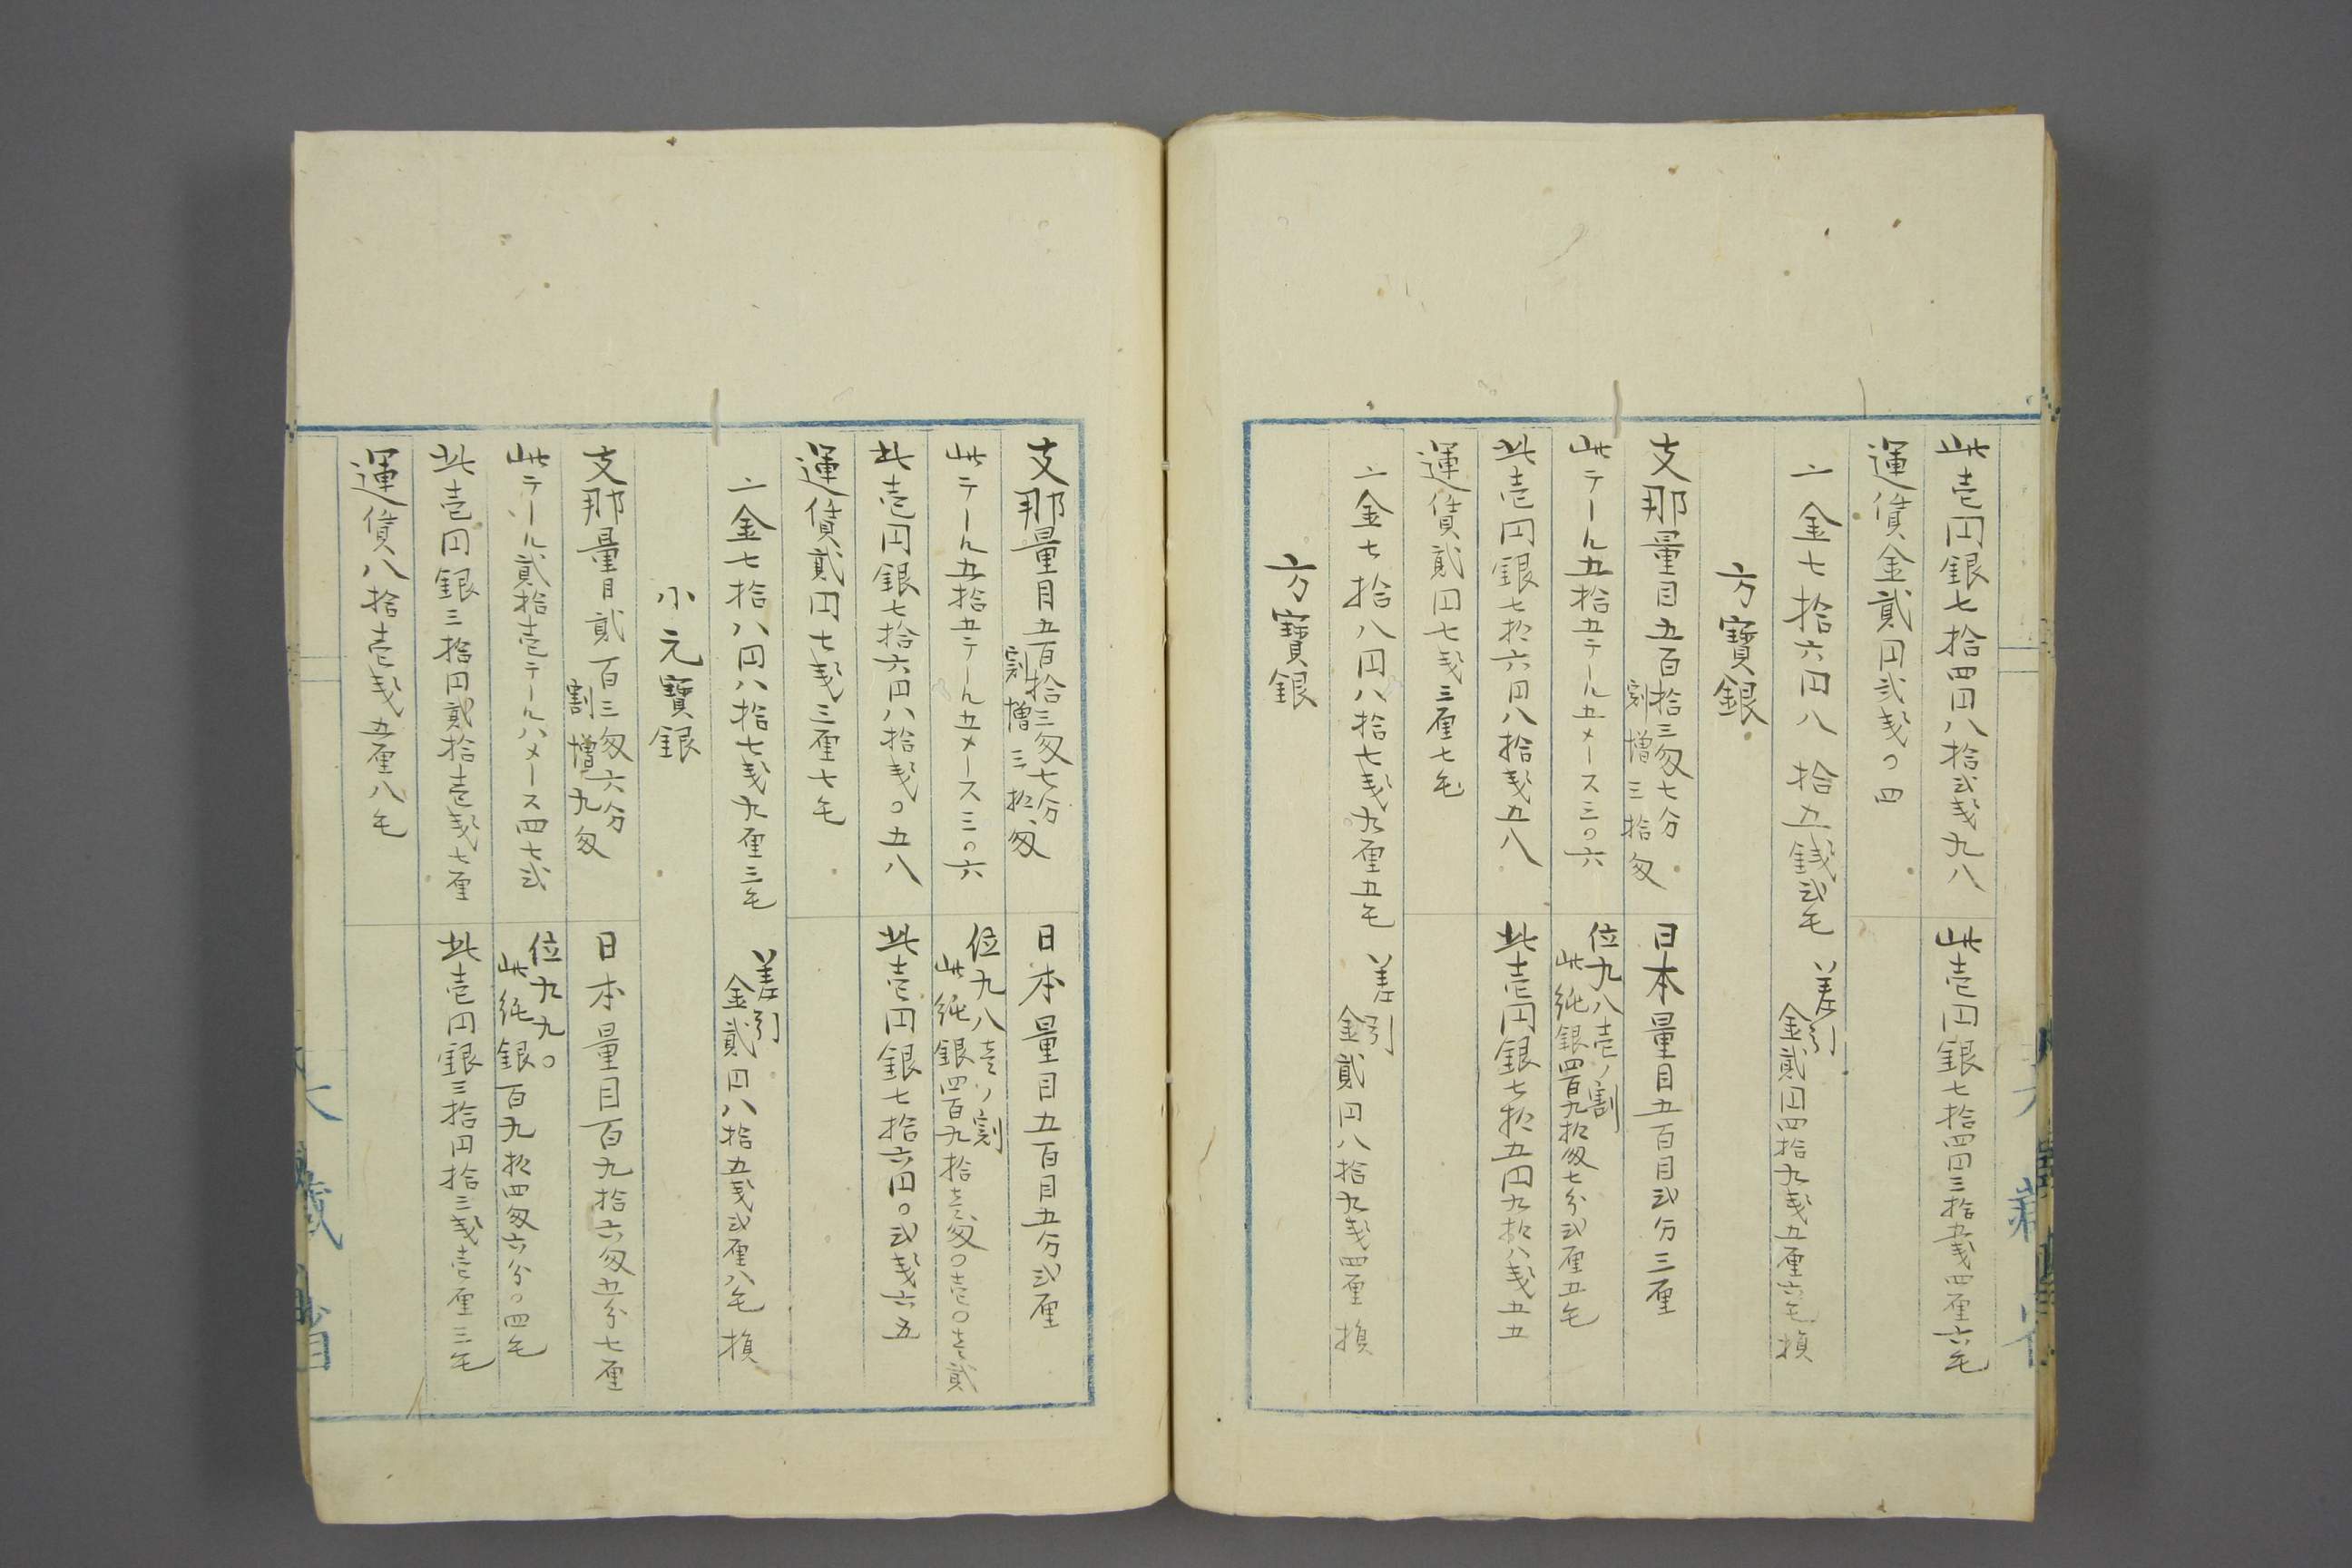 此壱円銀七拾四円八拾弐戋九八
此壱円銀七拾四円三拾五戋四厘六毛
運賃金貳円弐戋〇四
〆金七拾六円八拾五銭弐毛
差引
金貳円四拾九戋五厘六毛損
方寶銀
支那量目五百拾三匁七分
割増三拾匁
日本量目五百目弐分三厘
此テール五拾五テール五メース三〇六
位九八壱ノ割
此純銀四百九拾匁七分弐厘五毛
此壱円銀七拾六円八拾戋五八
此壱円銀七拾五円九拾八戋五五
運賃貳円七戋三厘七毛
〆金七拾八円八拾七戋九厘五毛
差引
金貳円八拾九戋四厘損
方寶銀
支那量目五百拾三匁七分
割増三拾匁
日本量目五百目五分弐厘
此テール五拾五テール五メース三〇六
位九八壱ノ割
此純銀四百九拾壱匁〇壱〇壱貳
此壱円銀七拾六円八拾戋〇五八
此壱円銀七拾六円〇弐戋六五
運賃貳円七戋三厘七毛
〆金七拾八円八拾七戋九厘三毛
差引
金貳円八拾五戋弐厘八毛損
小元寶銀
支那量目貳百三匁六分
割増九匁
日本量目百九拾六匁五分七厘
此テール貳拾壱テール八メース四七弐
位九九〇
此純銀百九拾四匁六分〇四毛
此壱円銀三拾円貳拾壱戋七厘
此壱円銀三拾円拾三戋壱厘三毛
運賃八拾壱戋五厘八毛
大蔵省